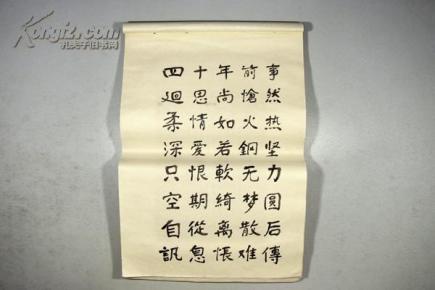 Kongfz.com
孔夫子旧书网
四十年前事
迴思尚愴然
柔情如火热
深爱若鋼坚
只恨軟无力
空期綺梦圆
自從离散后
訊息悵难傳